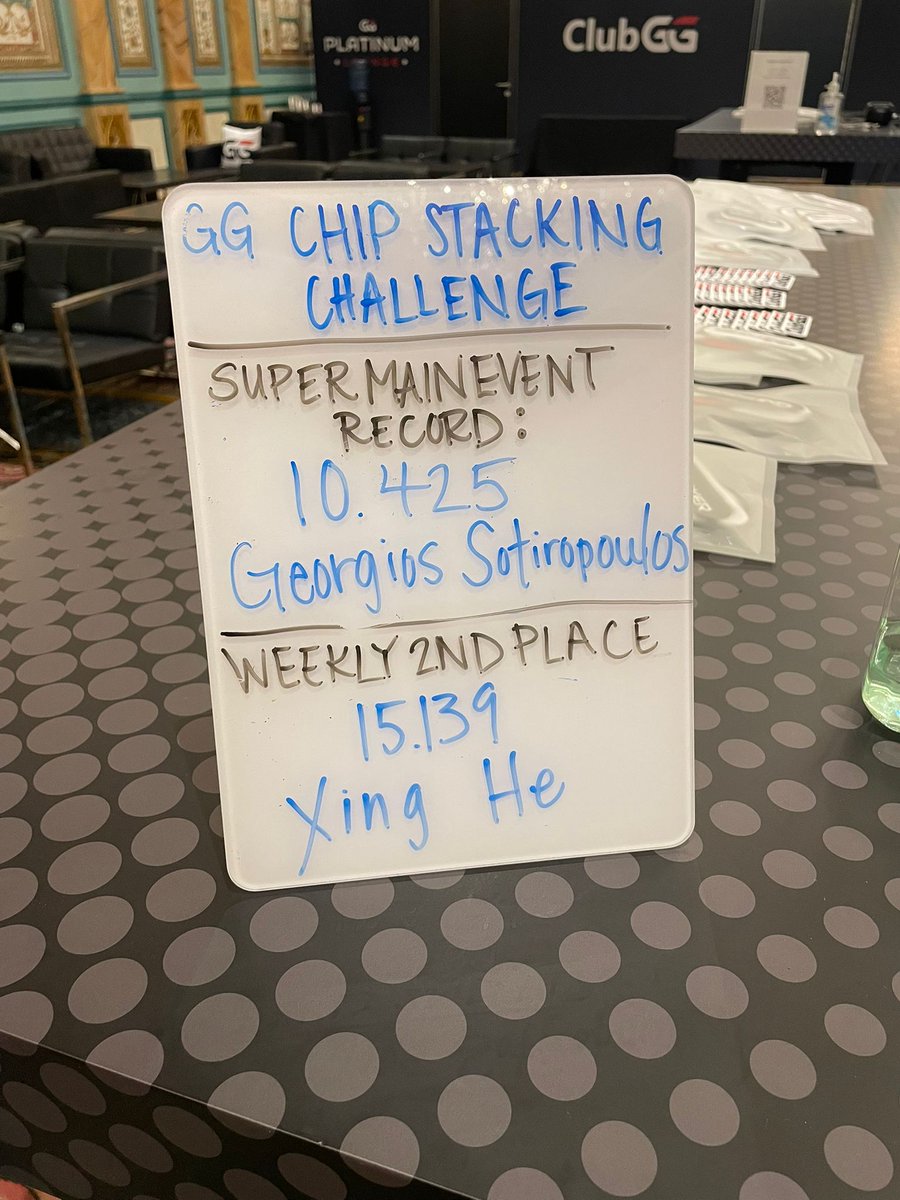 GG
PLATINUM
LOUNGE
ClubGG
GG
GG CHIP STACKING
CHALLENGE
SUPER MAIN EVENT
RECORD:
10.425
Georgios Sotiropoulos
WEEKLY 2ND PLACE
15.139
Xing He